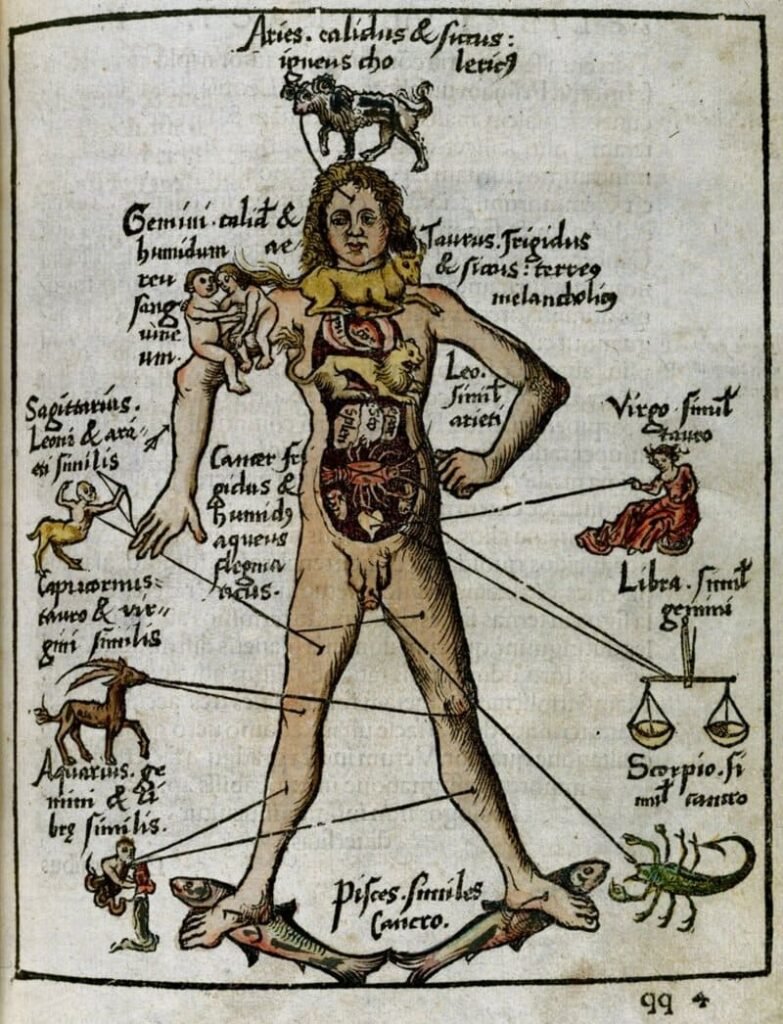 Aries. calidus & siccus:
igneus cho lericꝰ
Gemini. calid &
humidum ae-
reu
sang
uine
um.
Taurus. Frigidus
& siccus: terreꝰ
melancholicꝰ
Leo.
simil
arieti
Sagittarius.
Leoni & ari-
eti similis
Cancer fri
gidus &
humidꝰ
aqueus
flegma
ticus.
Virgo. simil
tauro
Capricornus-
tauro & vir-
gini similis
Libra. simil
gemini
Aquarius. ge
mini & li
brę similis.
Scorpio. si
mil cancro
Pisces. similes
Cancro.
qq 4